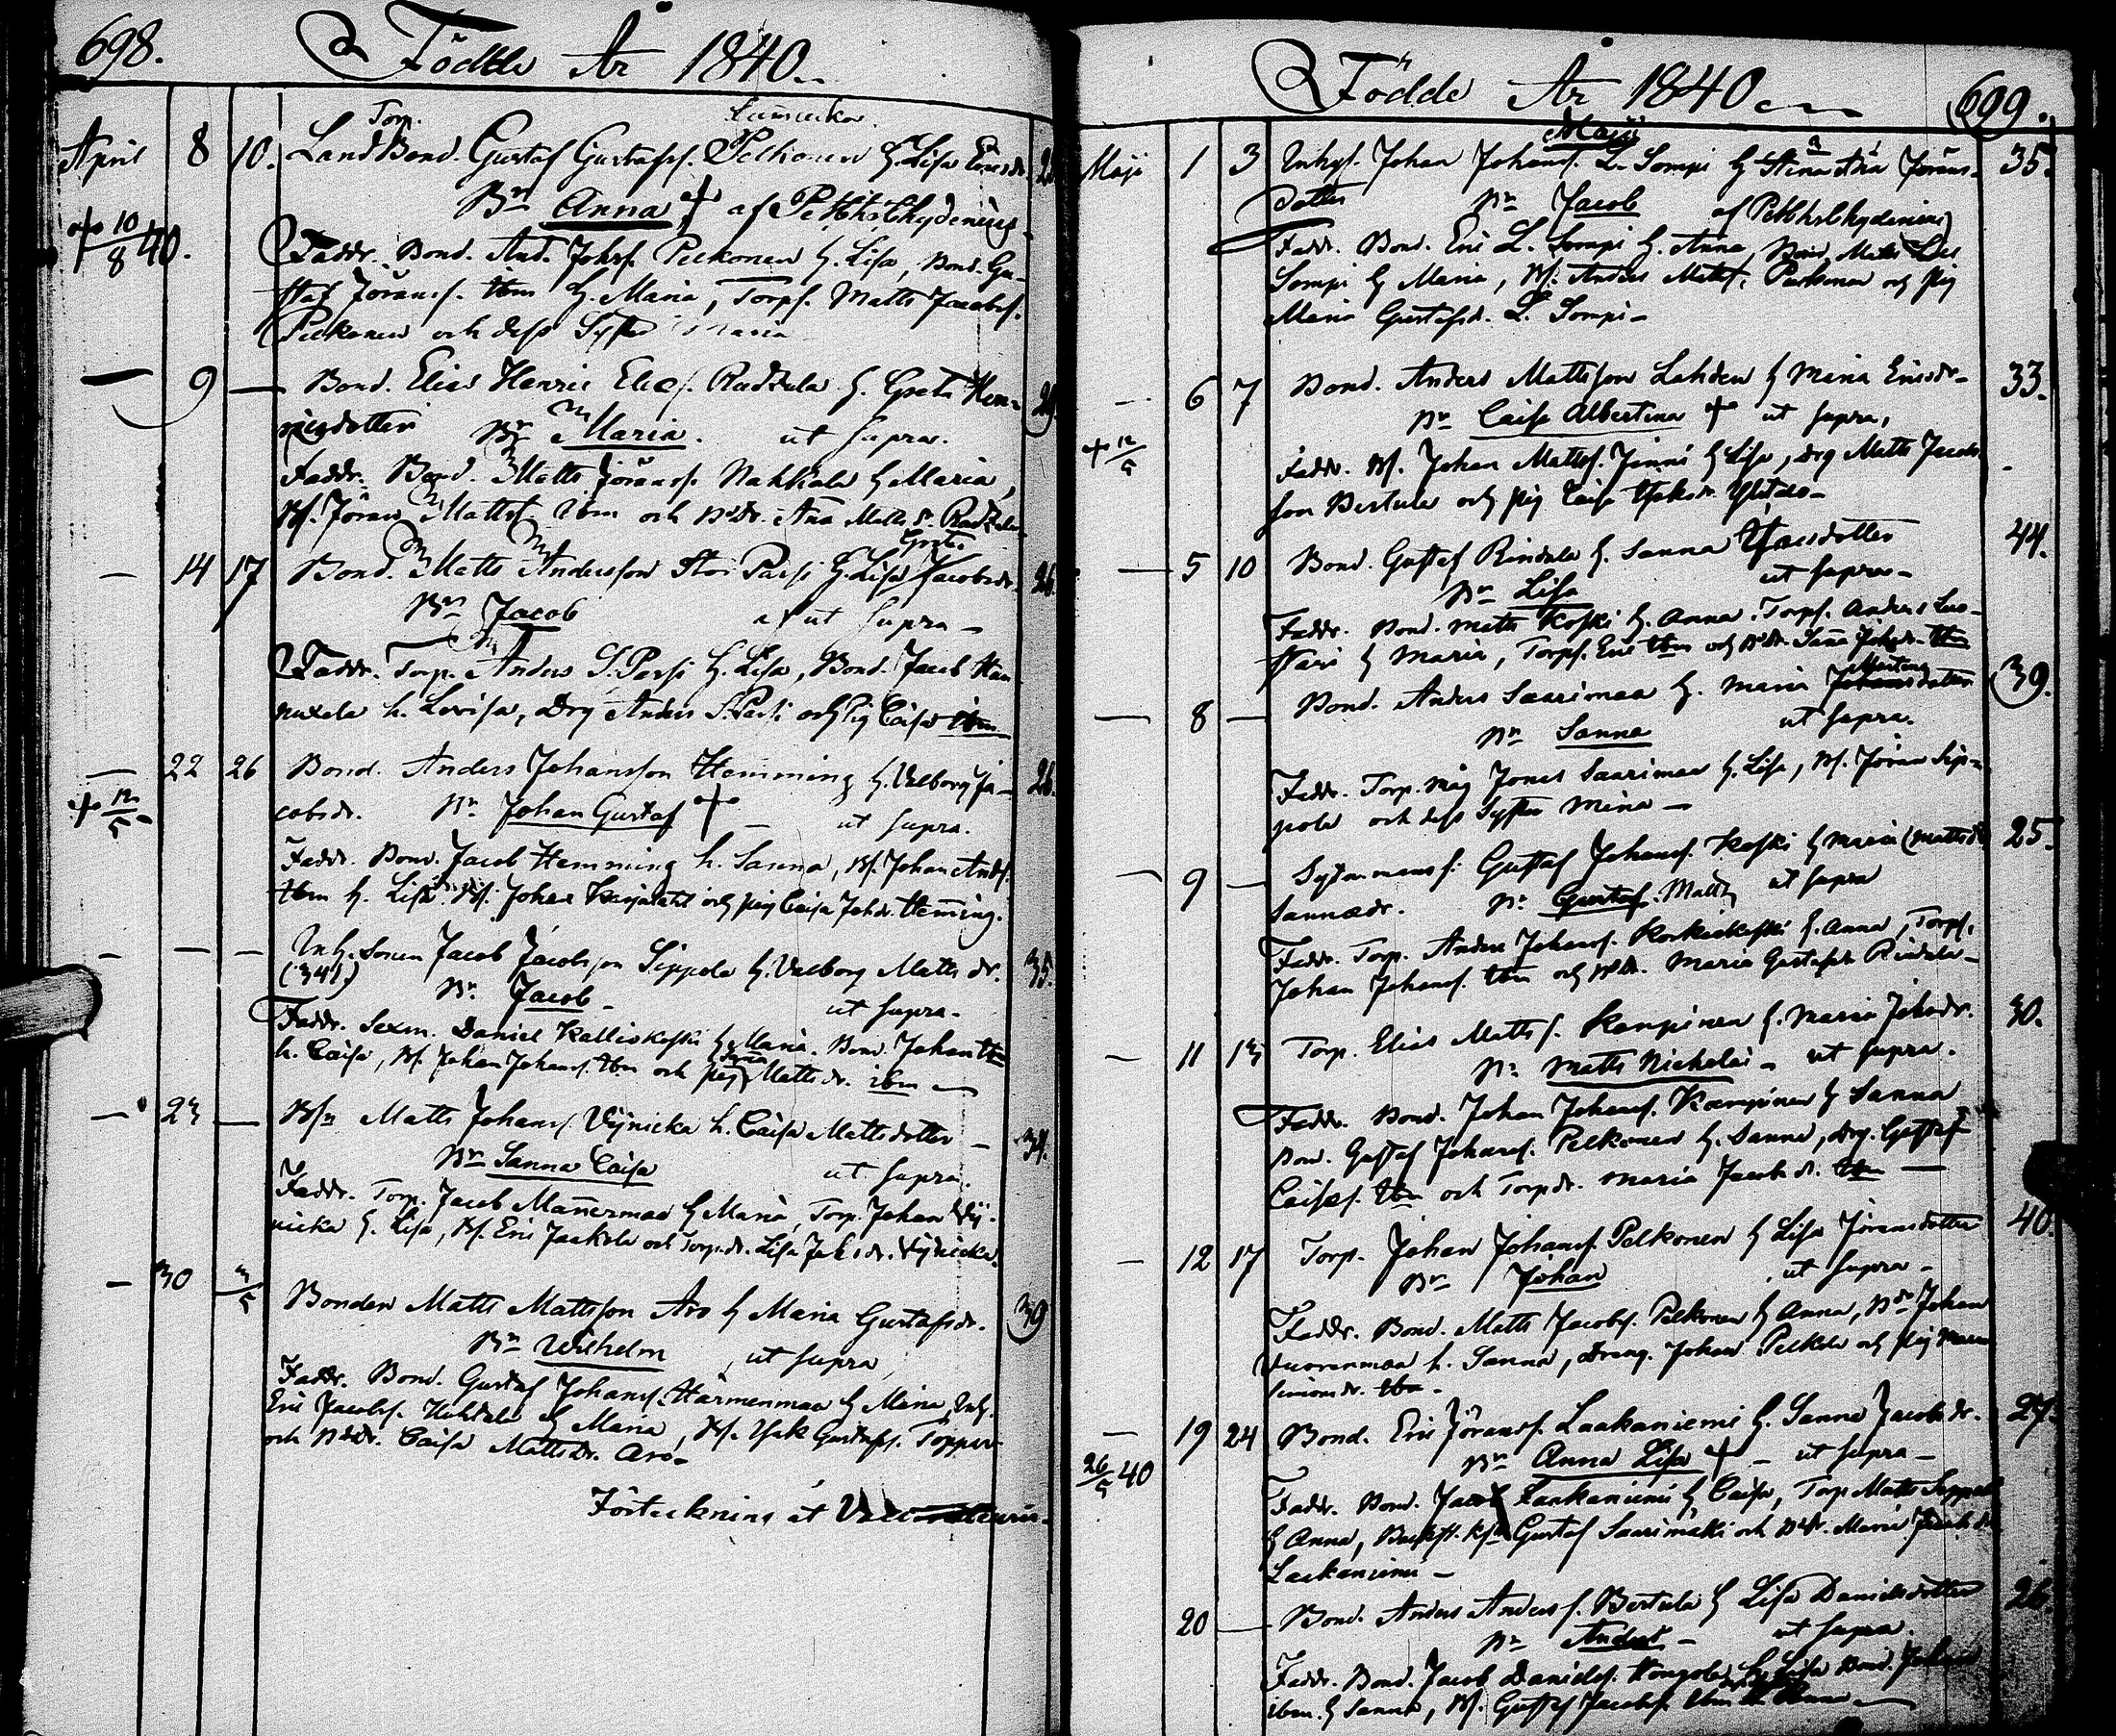 698. Födde År 1840.
Torp.
April 8 10. Land Bond. Gustaf Gustafss. Pelkonen h. Lisa Ericsdr.
Bn Anna + af
+ 10/8 40.
Faddr. Bond. And. Johss. Pelkonen h. Lisa, Bond. Gu-
staf Jöranss. ibm h. Maria, Torps. Matts Jacobss.
Pelkonen och dess Syster Maria
— 9 — Bond. Elias Henric Eliæss. Rudzula h. Greta Hen-
ricsdotter Bn Maria. ut supra.
Faddr. Bond. Matts Jöranss. Nahkala h. Maria,
Bs. Jöran Mattss. ibm och Bdr. Aña Matts dr.
Greta
— 14 17 Bond. Matts Andersson Stor Passi h. Lisa Jacobsdr. 26.
Bn Jacob af ut supra —
Faddr. Torp. Anders S. Passi h. Lisa, Bond. Jacob Kan
nuxela h. Lovisa, Drg Anders S. Passi och Pig Caisa ibm
— 22 26 Bond. Anders Johansson Hemming h. Valborg Ja- 26.
+ 12/5 cobsdr. Bn Johan Gustaf + — ut supra.
Faddr. Bond. Jacob Hemming h. Sanna, Bs. Johan Ands.
ibm h. Lisa. Bs. Johan Karjalahti och pig Caisa Johdr. Heming.
— — — Inh. Sonen Jacob Jacobsson Sippola h. Valborg Matts dr. 35.
(341) Bn. Jacob — ut supra —
Faddr. Sexm. Daniel Kalliokoski h. Maria. Bond. Johan ibm
h. Caisa, Bs. Johan Johanss. ibm och pig Matts dr. ibm —
— 23 — Bsn Matts Johanss. Vijnicka h. Caisa Mattsdotter — 34.
Bn Sanna Caisa ut supra.
Faddr. Torp. Jacob Mañermaa h. Maria, Torp. Johan Vij-
nicka h. Lisa, Bs. Eric Jaakola och Torp.dr. Lisa Johs dr. Vijnicka.
— 30 3/5 Bonden Matts Mattsson Aro h. Maria Gustafsdr. 39
Bn Wilhelm ut supra
Faddr. Bond. Gustaf Johanss. Härmenmaa h. Maria, Inh.
Eric Jacobss. Huhdala h. Maria, Bs. Isak Gustafss. Töpper
och Bdr. Caisa Mattsdr. Aro —
Förteckning åt
Födde År 1840 699.
Maji
Maji 1 3 Inhys. Johan Johanss. L. Sompi h. Stina Aña Jörans- 35.
dotter Bn Jacob af
Faddr. Bond. Eric L. Sompi h. Anna, Bond. Matts
Sompi h. Maria, Bs. Anders Mattss. Parkonen och Pig
Maria Gustafsd. L. Sompi —
— 6 7 Bond. Anders Mattsson Lahden h. Maria Ericsdr — 33.
+ 12/5 Bn Caisa Albertina + ut supra,
Faddr. Bs. Johan Mattss. Jinni h. Lisa, Drg Matts Jacobs-
son Bertula och pig Caisa Isaksdr. Ylitalo —
— 5 10 Bond. Gustaf Rindala h. Sanna Isacsdotter 44.
Bn Lisa ut supra —
Faddr. Bond. Matts Koski h. Anna. Torps. Anders Luo-
stari h. Maria, Torps. Eric ibm och Bdr. Saña Johdr. ibm
Mårtens
— 8 — Bond. Anders Saarimaa h. Maria Johansdotter 39.
Bn Sanna ut supra.
Faddr. Torp. måg Jonas Saarimaa h. Lisa, Bs. Jöran Sip-
pola och dess Syster Mina —
— 9 — Sytnmanss. Gustaf Johanss. Koski h. Maria (Mattsdr) 25.
Sannædr. Bn. Gustaf. Matts ut supra
Faddr. Torp. Anders Johanss. Korkiakoski h. Anna, Torps.
Johan Johanss. ibm och Bdr. Maria Gustafsdr Rindala —
— 11 13 Torp. Elias Matts s. Kampinen h. Maria Johsdr. 30.
Bn. Matts Nickolai — ut supra.
Faddr. Bond. Johan Johanss. Kampinen h. Sanna
Bond. Gustaf Johanss. Pelkonen h. Sanna, drg. Gustaf
Caisæs. ibm och Torpdr. Maria Jacobs d. ibm —
— 12 17 Torp. Johan Johanss. Pelkonen h. Lisa Jöransdotter 40.
Bn Johan ut supra —
Faddr. Bond. Matts Jacobs. Pelkonen h. Anna, Bdn Johan
Vuorenmaa h. Sanna, dreng. Johan Pelkola och pig Maria
Simonsdr. ibm —
— 19 24 Bond. Eric Jöranss. Laakaniemi h. Sanna Jacobsdr. 27.
26/5 40 Bn Anna Lisa + — ut supra —
Faddr. Bond. Jacob Laakaniemi h. Caisa, Torp. Matts Seppälä
h. Anna, Gustaf Saarimäki och Bdr. Maria Jacobs dr
Laakaniemi —
20 — Bond. Anders Anderss. Bertula h. Lisa Danielsdotter 26.
Bn Anders — ut supra.
Faddr. Bond. Jacob Danielss. h. Lisa Bond. Johan
ibm. h. Sanna, Bs. Gustaf Jacobss. ibm